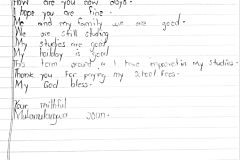 How are you now days.
I hope you are fine.
Me and my family we are good.
We are still studing
My studies are good
My holiday is good
This team around a I have improved in my studies.
Thank you for paying my school fees.
My God bless.
Your faithful
John.